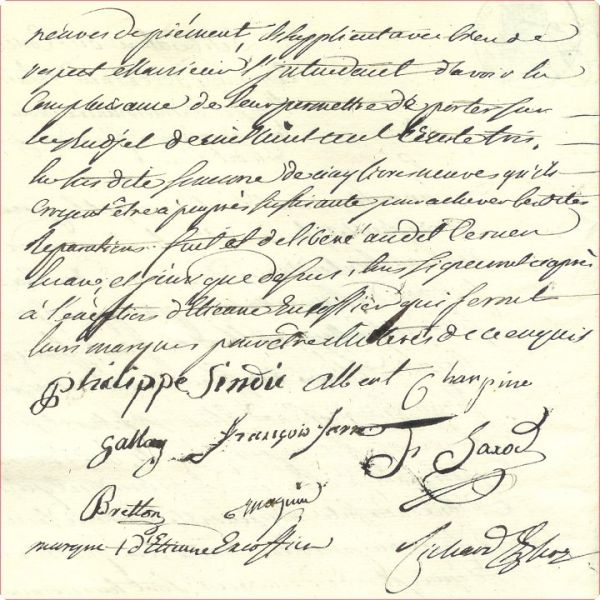 neuves de piémont, Ils supplient avec bien de
respect Monsieur l'Intendant d'avoir la
Complaisance de leur permettre de porter sur
le Budjet de mil huit cent trente trois,
la susdite somme de cinq livres neuves qu'ils
croyent être à peu près suffisante pour achever lesdites
Réparations. fait et délibéré audit Cernex
les an et jour que dessus, tous signeront ci après
à l'exception d'Etienne Excoffier qui feront
leurs marques pour être illitérés de ce enquis
philippe Sindic Albert Champine
Gallay françois
Bretton Magnin
marque + d'Etienne Excoffier Richard